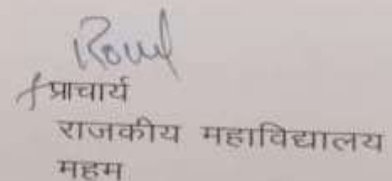 प्राचार्य
राजकीय महाविद्यालय
महम